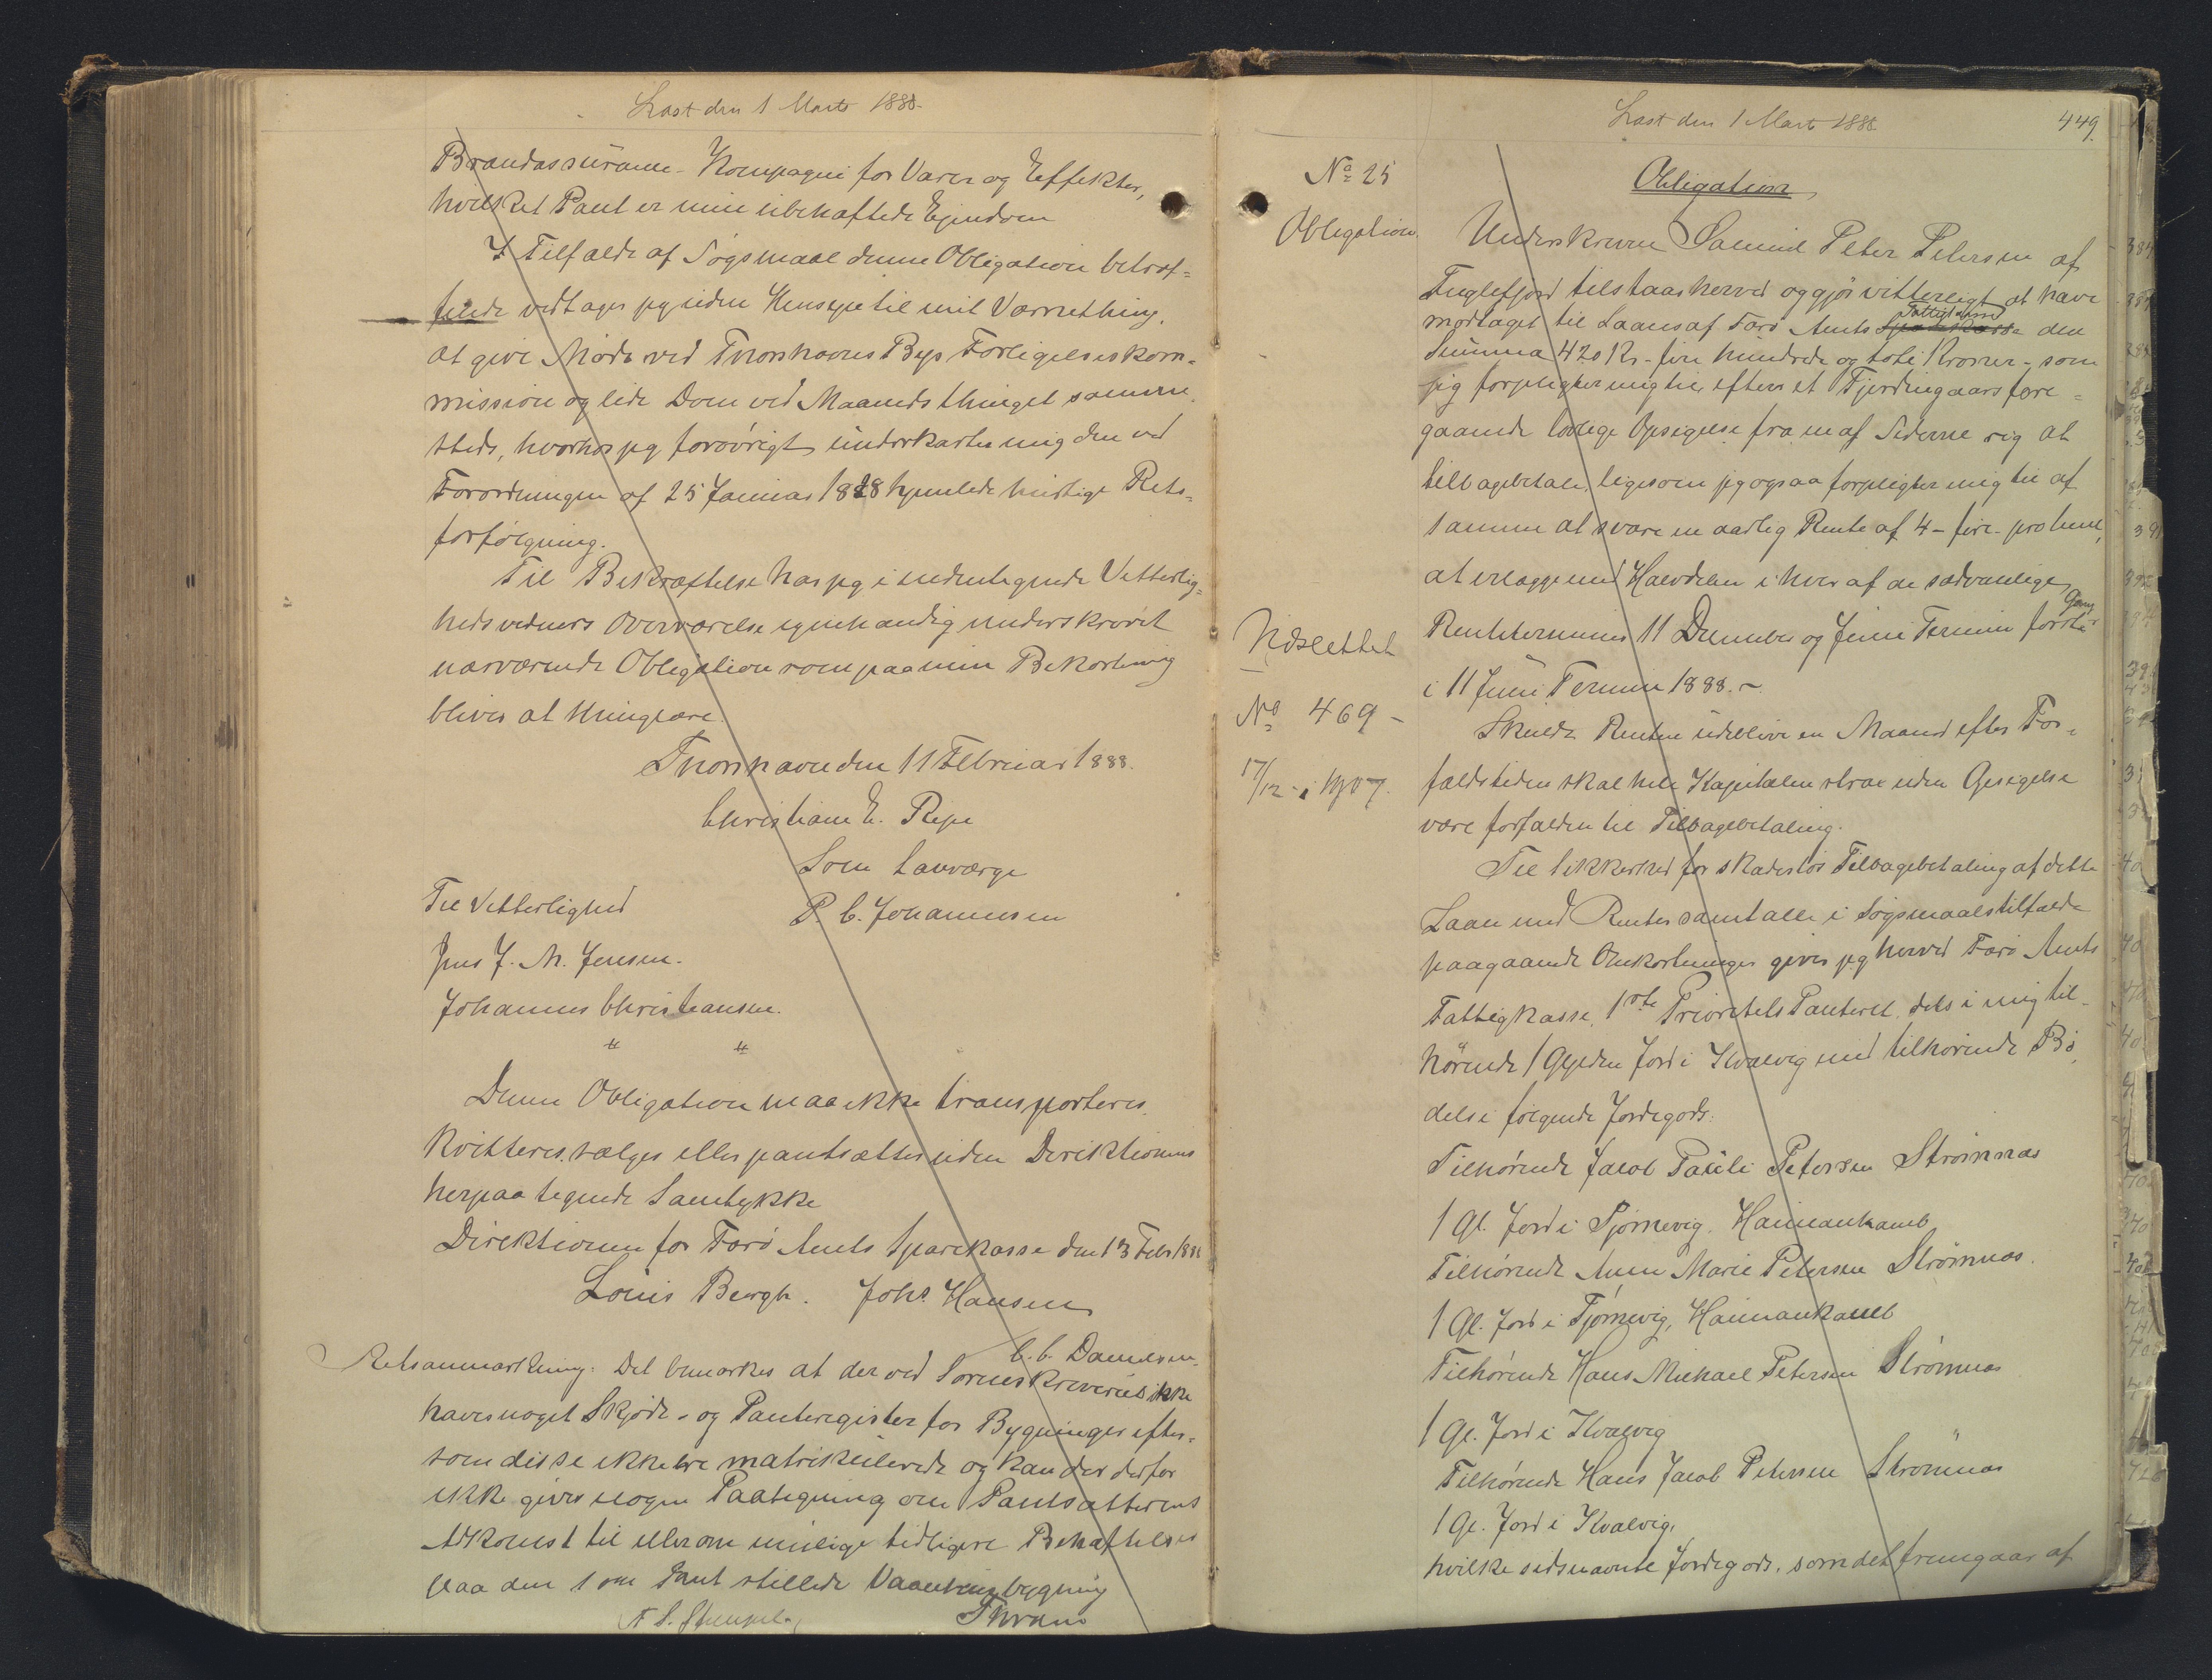 Læst den 1 Marts 1888.
Brandassurance-Kompagni for Varer og Effekter,
hvilket Pant er min ubehæftede Ejendom
I Tilfælde af Søgsmaal denne Obligation betræf-
fende vedtager jeg uden Hensyn til mit Værnething,
at give Møde ved Thorshavns Byes Forligelseskom-
mission og lide Dom ved Maanedsthinget samme-
steds, hvorhos jeg forøvrigt underkaster mig den ved
Forordningen af 25 Januar 1828 hjemlede hurtige Rets-
forfølgning.
Til Bekræftelse har jeg i undertegnede Vitterlig-
hedsvidners Overværelse egenhændig underskrevet
nærværende Obligation som paa min Bekostning
bliver at thinglære.
Thorshavn den 11 Februar 1888.
Christiane E. Repe
Som Lavværge
Til Vitterlighed
P. C. Johannesen
Jens J. M. Jensen.
Johannes Christiansen.
" "
Denne Obligation maa ikke transporteres,
kvitteres, sælges eller pantsættes uden Direktionens
herpaa tegnede Samtykke
Direktionen for Færø Amts Sparekasse den 13 Febr 1888
Louis Bergh. Johs. Hansen
C. C. Danielsen.
Retsanmærkning: Det bemærkes at der ved Sorenskriveriet ikke
haves noget Skjøde- og Panteregister for Bygninger efter-
som disse ikke ere matrikulerede og kan der derfor
ikke gives nogen Paategning om Pantsætterens
Adkomst til eller om mulige tidligere Behæftelser
paa den som Pant stillede Vaaningsbygning
Læst den 1 Marts 1888
449.
No 25
Obligation.
Obligation
Underskreven Samuel Peter Petersen af
Fuglefjord tilstaar herved og gjør vitterligt at have
modtaget til Laans af Færø Amts Sparekasse Fattigkasse den
Summa 420 Kr - fire hundrede og tote Kroner - som
jeg forpligter mig til efter et Fjerdingaars fore-
gaaende lovlige Opsigelse fra en af Siderne rig at
tilbagebetale, ligesom jeg ogsaa forpligter mig til af
samme at svare en aarlig Rente af 4 - fire - procent,
at erlægge med Halvdelen i hver af de sædvanlige
Rentetermins 11 December og Juni Termin første Gang
i 11 Juni Termin 1888. -
Udslettet
No 469 -
17/12 - 1907.
Skulde Renten udeblive en Maaned efter For-
faldstiden skal hele Kapitalen strax uden Opsigelse
være forfalden til Tilbagebetaling.
Til Sikkerhed for skadesløs Tilbagebetaling af dette
Laan med Renter samt alle i Søgsmaalstilfælde
paagaaende Omkostninger giver jeg herved Færø Amts
Fattigkasse, 1ste Prioritets Panteret dels i mig til-
hørende 1 Gylden Jord i Kvalvig med tilhørende Bø,
dels i følgende Jordegods:
Tilhørende Jacob Pauli Petersen Strømnæs
1 Gl. Jord i Tjørnevig, Heimankamb
Tilhørende Anne Marie Petersen Strømnæs.
1 Gl. Jord i Tjørnevig, Heimankamb
Tilhørende Hans Michael Petersen Strømnæs
1 Gl. Jord i Kvalvig
Tilhørende Hans Jacob Petersen Strømnæs
1 Gl. Jord i Kvalvig,
hvilke sidsnævnte Jordegods, som det fremgaar af